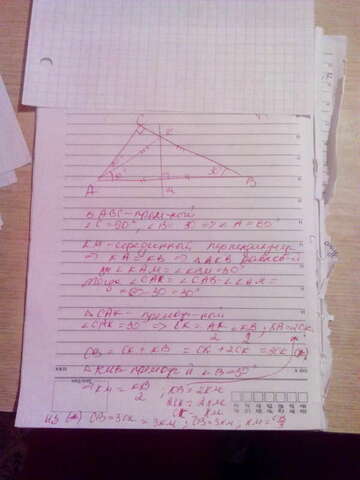 C
K
30°
A
M
B
Δ ABC - прям-ной
∠C = 90°, ∠B = 30 => ∠A = 60°
KM - серединный перпендикуляр
=> KA = KB => Δ AKB равноб-й
∠KAM = ∠KBM = 30°
Тогда ∠CAK = ∠CAB - ∠KAM =
= 60 - 30 = 30°
Δ CAK - прямоуг-ной
∠CAK = 30° => CK = AK/2 = KB/2 ; KB = 2CK
CB = CK + KB = CK + 2CK = 3CK (*)
Δ KMB прямоуг-й ∠B = 30°
=> KM = KB/2 ; KB = 2KM
2CK = 2KM
CK = KM
из (*) CB = 3CK = 3KM ; CB = 3KM ; KM = CB/3